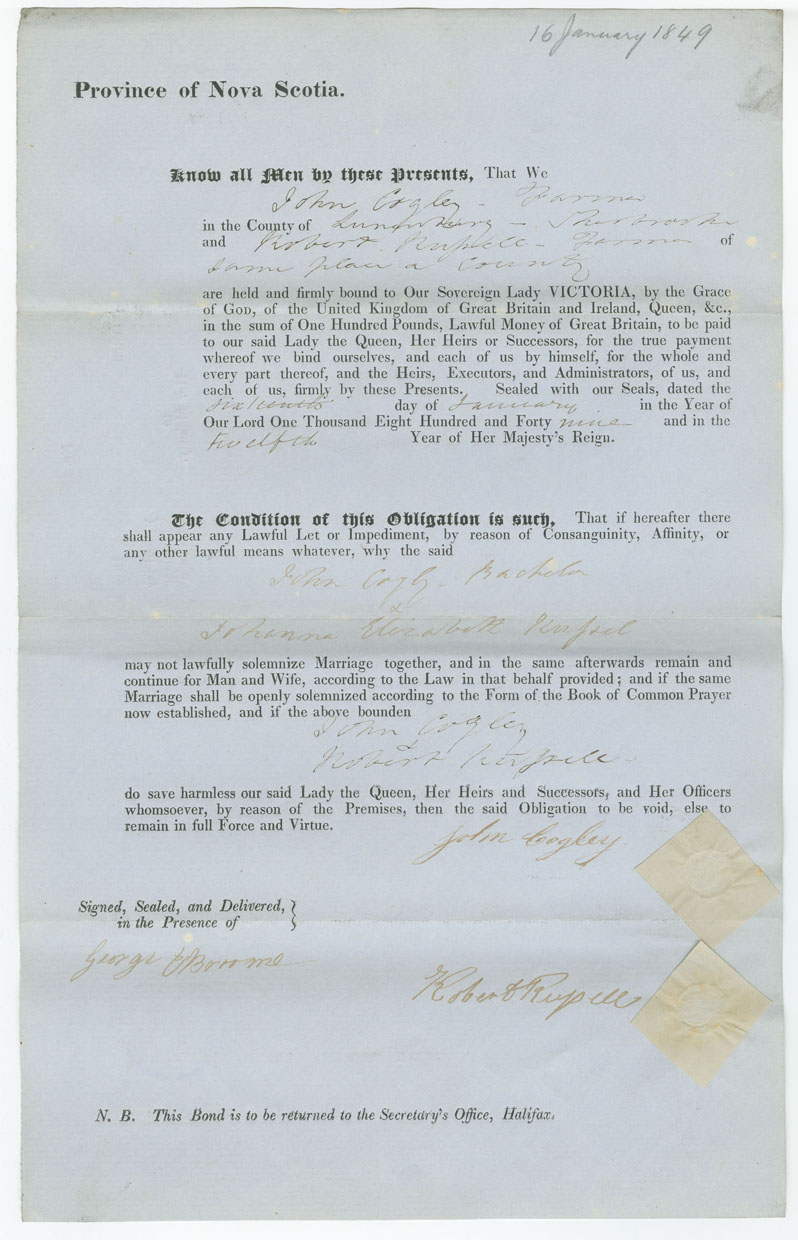 16 January 1849
Province of Nova Scotia.
Know all Men by these Presents, That We
John Cogley - Farmer
in the County of Lunenburg - Sherbrooke
and Robert Russell - Farmer of
same place & County
are held and firmly bound to Our Sovereign Lady VICTORIA, by the Grace
of GOD, of the United Kingdom of Great Britain and Ireland, Queen, &c.,
in the sum of One Hundred Pounds, Lawful Money of Great Britain, to be paid
to our said Lady the Queen, Her Heirs or Successors, for the true payment
whereof we bind ourselves, and each of us by himself, for the whole and
every part thereof, and the Heirs, Executors, and Administrators, of us, and
each of us, firmly by these Presents. Sealed with our Seals, dated the
Sixteenth day of January in the Year of
Our Lord One Thousand Eight Hundred and Forty nine and in the
Twelfth Year of Her Majesty's Reign.
The Condition of this Obligation is such, That if hereafter there
shall appear any Lawful Let or Impediment, by reason of Consanguinity, Affinity, or
any other lawful means whatever, why the said
John Cogly - Bachelor
&
Johanna Elizabeth Russel
may not lawfully solemnize Marriage together, and in the same afterwards remain and
continue for Man and Wife, according to the Law in that behalf provided; and if the same
Marriage shall be openly solemnized according to the Form of the Book of Common Prayer
now established, and if the above bounden
John Cogley
&
Robert Russell -
do save harmless our said Lady the Queen, Her Heirs and Successors, and Her Officers
whomsoever, by reason of the Premises, then the said Obligation to be void, else to
remain in full Force and Virtue.
John Cogley
Signed, Sealed, and Delivered, }
in the Presence of
George Broome
Robert Russell
N. B. This Bond is to be returned to the Secretary's Office, Halifax.